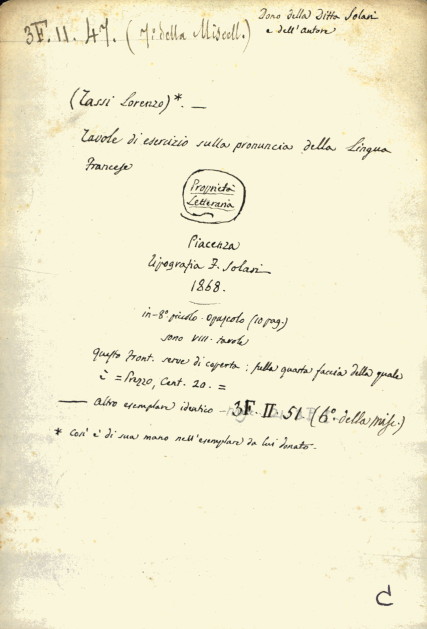 3F. II. 47. (7º della Miscell.)
Dono della Ditta Solari
e dell'autore
(Tassi Lorenzo)*. —
Tavole di esercizio sulla pronuncia della Lingua
Francese
Proprietà
Letteraria
Piacenza
Tipografia F. Solari
1868.
in-8º piccolo. opuscolo (10 pag.)
sono VIII. tavole
questo front. serve di coperta; sulla quarta faccia della quale
è = Prezzo, Cent. 20. =
— altro esemplare identico - 3F II 51 (6º della misc.)
* Così è di sua mano nell'esemplare da lui donato -
C